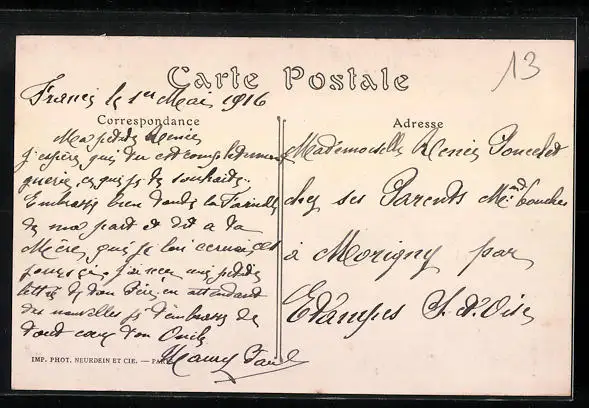 13
Carte Postale
le 1er Mai 1916
Correspondance
Adresse
Ma petite Renée
J'espère que tu es complètement
guérie, ce que je te souhaite.
Embrasse bien toute la Famille
de ma part et dit a ta
Mère, que je lui ces
jours ci. J'ai une petite
lettre de ton Père, en attendant
des nouvelles je t'embrasse de
tout cœur ton Oncle
Mademoiselle Renée Poncelet
chez ses Parents Md boucher
à Morigny par
Etampes S. et Oise
IMP. PHOT. NEURDEIN ET CIE. — PARIS